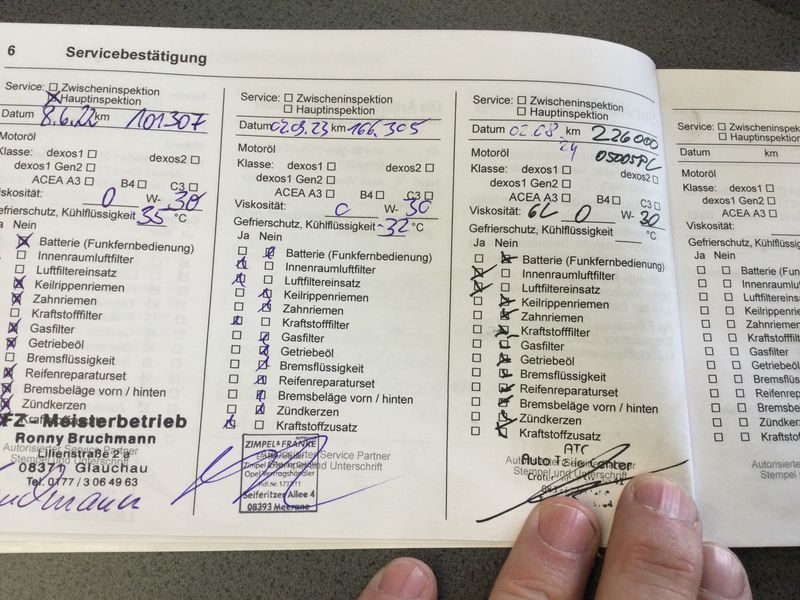 6 Servicebestätigung
Service: Zwischeninspektion
Hauptinspektion
Datum 8.6.22 km 101307
Motoröl
Klasse: dexos1 dexos2
dexos1 Gen2
ACEA A3 B4 C3
Viskosität: 0 W- 30
Gefrierschutz, Kühlflüssigkeit 35 °C
Ja Nein
Batterie (Funkfernbedienung)
Innenraumluftfilter
Luftfiltereinsatz
Keilrippenriemen
Zahnriemen
Kraftstofffilter
Gasfilter
Getriebeöl
Bremsflüssigkeit
Reifenreparaturset
Bremsbeläge vorn / hinten
Zündkerzen
FZ- Meisterbetrieb
Ronny Bruchmann
Autorisierter Service Partner
Stempel und Unterschrift
Lilienstraße 2 a
08371 Glauchau
Tel. 0177 / 3 06 49 63
Service: Zwischeninspektion
Hauptinspektion
Datum 02.09.23 km 166.305
Motoröl
Klasse: dexos1 dexos2
dexos1 Gen2
ACEA A3 B4 C3
Viskosität: 0 W- 30
Gefrierschutz, Kühlflüssigkeit -32 °C
Ja Nein
Batterie (Funkfernbedienung)
Innenraumluftfilter
Luftfiltereinsatz
Keilrippenriemen
Zahnriemen
Kraftstofffilter
Gasfilter
Getriebeöl
Bremsflüssigkeit
Reifenreparaturset
Bremsbeläge vorn / hinten
Zündkerzen
Kraftstoffzusatz
ZIMPEL & FRANKE
Service Partner
Unterschrift
Opel Vertragshändler
Seiferitzer Allee 4
08393 Meerane
Service: Zwischeninspektion
Hauptinspektion
Datum 02.08. km 226000
24
Motoröl 05005PL
Klasse: dexos1 dexos2
dexos1 Gen2
ACEA A3 B4 C3
Viskosität: 6L 0 W- 30
Gefrierschutz, Kühlflüssigkeit °C
Ja Nein
Batterie (Funkfernbedienung)
Innenraumluftfilter
Luftfiltereinsatz
Keilrippenriemen
Zahnriemen
Kraftstofffilter
Gasfilter
Getriebeöl
Bremsflüssigkeit
Reifenreparaturset
Bremsbeläge vorn / hinten
Zündkerzen
Kraftstoffzusatz
ATC
Stempel und Unterschrift
Service: Zwischeninspektion
Hauptinspektion
Datum km
Motoröl
Klasse: dexos1
dexos1 Gen2
ACEA A3
Viskosität:
Gefrierschutz, Kühlflüssig
Ja Nein
Batterie (Funkf
Innenraumluftf
Luftfiltereinsat
Keilrippenriem
Zahnriemen
Kraftstofffilt
Gasfilter
Getriebeöl
Bremsflüss
Reifenrepa
Bremsbelä
Zündkerze
Kraftstoffz
Autorisierte
Stempel